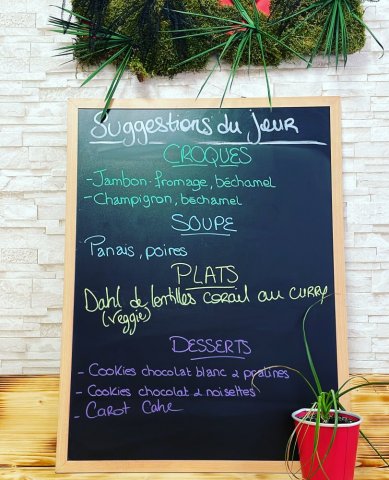 Suggestions du jour
CROQUES
- Jambon-fromage, béchamel
- Champignon, béchamel
SOUPE
Panais, poires
PLATS
Dahl de lentilles corail au curry
(veggie)
DESSERTS
- Cookies chocolat blanc & pralines
- Cookies chocolat & noisettes
- Carot Cake